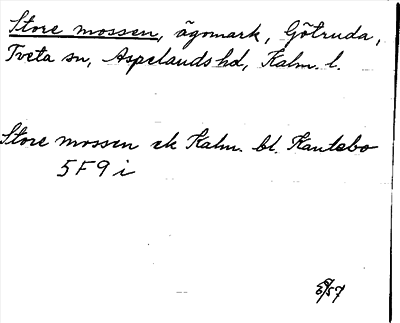 Store mossen, ägomark, Götruda,
Tveta sn, Aspelands hd, Kalm. l.
Store mossen ek Kalm. bl. Kantebo
5F9i